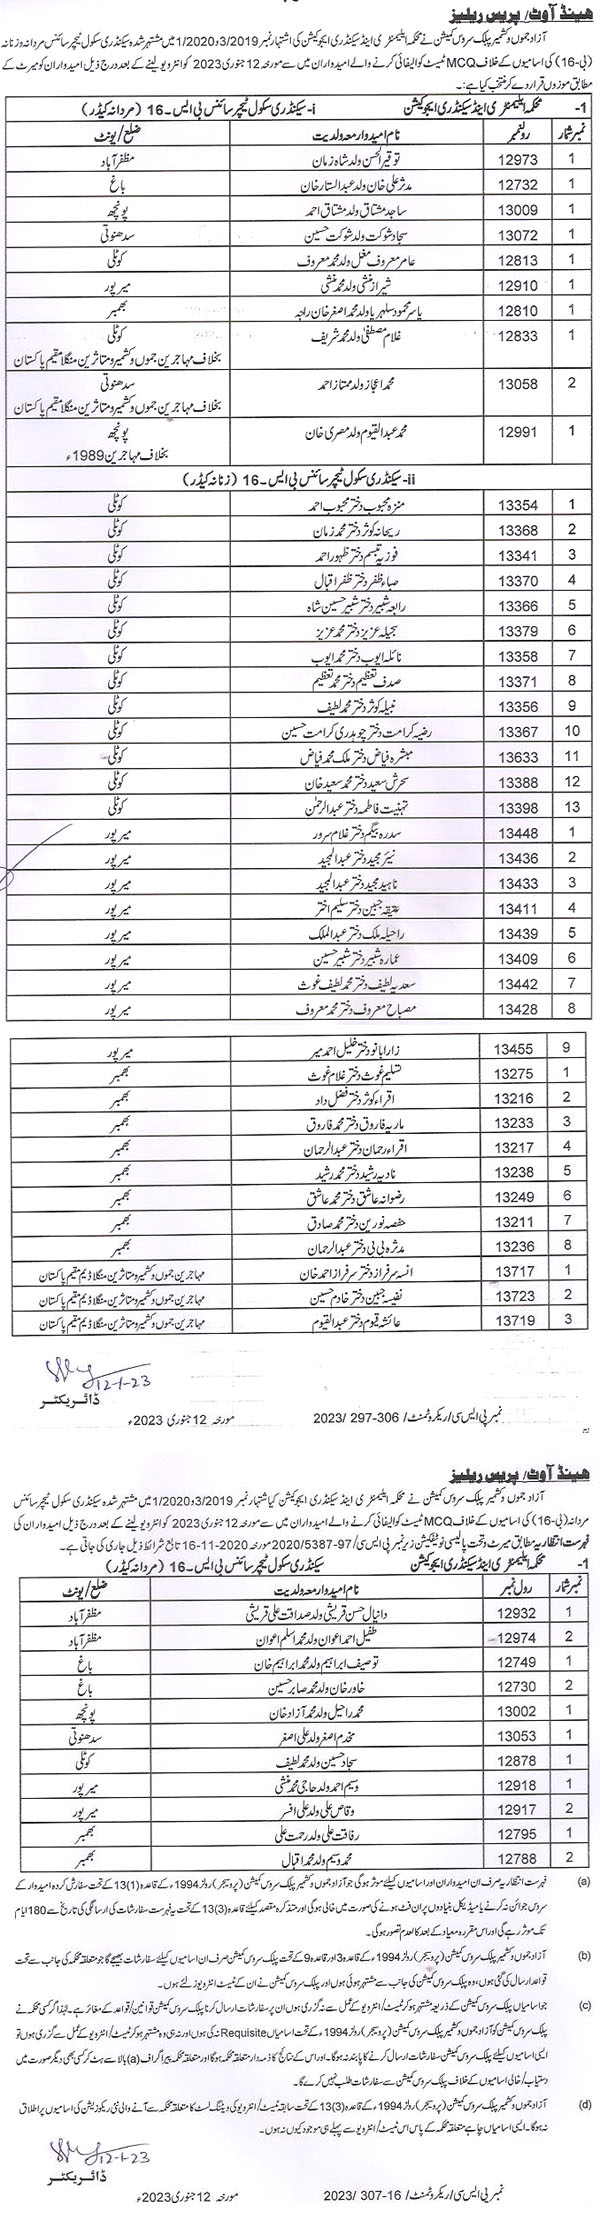 ہینڈ آؤٹ/ پریس ریلیز
آزاد جموں وکشمیر پبلک سروس کمیشن نے محکمہ ایلیمنٹری اینڈ سیکنڈری ایجوکیشن کی اشتہار نمبر 3/2019و1/2020 میں مشتہر شدہ سیکنڈری سکول ٹیچر سائنس مردانہ و زنانہ
(بی-16) کی اسامیوں کے خلاف MCQ ٹیسٹ کوالیفائی کرنے والے امیدواران میں سے مورخہ 12 جنوری 2023 کو انٹرویو لینے کے بعد درج ذیل امیدواران کو میرٹ کے
مطابق موزوں قرار دے کر منتخب کیا ہے:۔
1- محکمہ ایلیمنٹری اینڈ سیکنڈری ایجوکیشن i- سیکنڈری سکول ٹیچر سائنس بی ایس۔16 (مردانہ کیڈر)
نمبر شمار رولنمبر نام امیدوار معہ ولدیت ضلع/یونٹ
1 12973 توقیر الحسن ولد شاہ زمان مظفرآباد
1 12732 مدثر علی خان ولد عبدالستار خان باغ
1 13009 ساجد مشتاق ولد مشتاق احمد پونچھ
1 13072 سجاد شوکت ولد شوکت حسین سدھنوتی
1 12813 عامر معروف مغل ولد محمد معروف کوٹلی
1 12910 شیراز منشی ولد محمد منشی میرپور
1 12810 یاسر محمود سلہریا ولد محمد اصغر خان راجہ بھمبر
1 12833 غلام مصطفیٰ ولد محمد شریف کوٹلی
بخلاف مہاجرین جموں وکشمیر ومتاثرین منگلا مقیم پاکستان
2 13058 محمد اعجاز ولد ممتاز احمد سدھنوتی
بخلاف مہاجرین جموں وکشمیر ومتاثرین منگلا مقیم پاکستان
1 12991 محمد عبدالقیوم ولد مصری خان پونچھ
بخلاف مہاجرین 1989ء
ii- سیکنڈری سکول ٹیچر سائنس بی ایس۔16 (زنانہ کیڈر)
1 13354 منزہ محبوب دختر محبوب احمد کوٹلی
2 13368 ریحانہ کوثر دختر محمد زمان کوٹلی
3 13341 فوزیہ تبسم دختر ظہور احمد کوٹلی
4 13370 صباء ظفر دختر ظفر اقبال کوٹلی
5 13366 رابعہ شبیر دختر شبیر حسین شاہ کوٹلی
6 13379 بجیلہ عزیز دختر محمد عزیز کوٹلی
7 13358 نائلہ ایوب دختر محمد ایوب کوٹلی
8 13371 صدف تعظیم دختر محمد تعظیم کوٹلی
9 13356 نبیلہ کوثر دختر محمد لطیف کوٹلی
10 13367 رضیہ کرامت دختر چوہدری کرامت حسین کوٹلی
11 13633 مبشرہ فیاض دختر ملک محمد فیاض کوٹلی
12 13388 سحرش سعید دختر محمد سعید خان کوٹلی
13 13398 تہنیت فاطمہ دختر عبدالرحمٰن کوٹلی
1 13448 سدرہ بیگم دختر غلام سرور میرپور
2 13436 نیئر مجید دختر عبدالمجید میرپور
3 13433 ناہید مجید دختر عبدالمجید میرپور
4 13411 عتیقہ جبین دختر سلیم اختر میرپور
5 13439 راحیلہ ملک دختر عبدالملک میرپور
6 13409 عمارہ شبیر دختر شبیر حسین میرپور
7 13442 سعدیہ لطیف دختر محمد لطیف غوث میرپور
8 13428 مصباح معروف دختر محمد معروف میرپور
9 13455 زارا بانو دختر خلیل احمد میر میرپور
1 13275 تسلیم غوث دختر غلام غوث بھمبر
2 13216 اقراء کوثر دختر فضل داد بھمبر
3 13233 ماریہ فاروق دختر محمد فاروق بھمبر
4 13217 اقراء رحمان دختر عبدالرحمان بھمبر
5 13238 نادیہ رشید دختر محمد رشید بھمبر
6 13249 رضوانہ عاشق دختر محمد عاشق بھمبر
7 13211 حفصہ نورین دختر محمد صادق بھمبر
8 13236 مدثرہ بی بی دختر عبدالرحمان بھمبر
1 13717 انسہ سرفراز دختر سرفراز احمد خان مہاجرین جموں وکشمیر ومتاثرین منگلا ڈیم مقیم پاکستان
2 13723 نفیسہ جبین دختر خادم حسین مہاجرین جموں وکشمیر ومتاثرین منگلا ڈیم مقیم پاکستان
3 13719 عائشہ قیوم دختر عبدالقیوم مہاجرین جموں وکشمیر ومتاثرین منگلا ڈیم مقیم پاکستان
12-1-23
ڈائریکٹر
نمبر پی ایس سی/ ریکروٹمنٹ/ 306-297 /2023 مورخہ 12 جنوری 2023ء
ہینڈ آؤٹ/ پریس ریلیز
آزاد جموں وکشمیر پبلک سروس کمیشن نے محکمہ ایلیمنٹری اینڈ سیکنڈری ایجوکیشن کیا شتہار نمبر 3/2019و1/2020 میں مشتہر شدہ سیکنڈری سکول ٹیچر سائنس
مردانہ (بی-16) کی اسامیوں کے خلاف MCQ ٹیسٹ کوالیفائی کرنے والے امیدواران میں سے مورخہ 12 جنوری 2023 کو انٹرویو لینے کے بعد درج ذیل امیدواران کی
فہرست انتظاریہ مطابق میرٹ و تحت پالیسی نوٹیفکیشن زیر نمبر پی ایس سی/97-5387/2020 مورخہ 2020-11-16 تابع شرائط ذیل جاری کی جاتی ہے۔
1- محکمہ ایلیمنٹری اینڈ سیکنڈری ایجوکیشن سیکنڈری سکول ٹیچر سائنس بی ایس۔16 (مردانہ کیڈر)
نمبر شمار رول نمبر نام امیدوار معہ ولدیت ضلع/یونٹ
1 12932 دانیال حسن قریشی ولد صداقت علی قریشی مظفرآباد
2 12974 طفیل احمد اعوان ولد محمد اسلم اعوان مظفرآباد
1 12749 توصیف ابراہیم ولد محمد ابراہیم خان باغ
2 12730 خاور خان ولد محمد صابر حسین باغ
1 13002 محمد راحیل ولد محمد آزاد خان پونچھ
1 13053 مخدم اصغر ولد علی اصغر سدھنوتی
1 12878 سجاد حسین ولد محمد لطیف کوٹلی
1 12918 وسیم احمد ولد حاجی محمد منشی میرپور
2 12917 وقاص علی ولد علی افسر میرپور
1 12795 رفاقت علی ولد رحمت علی بھمبر
2 12788 محمد وسیم ولد محمد اقبال بھمبر
(a) فہرست انتظاریہ صرف ان امیدواران اور اسامیوں کیلئے موثر ہوگی جو آزاد جموں وکشمیر پبلک سروس کمیشن (پروسیجر) رولز 1994ء کے قاعدہ (1)13 کے تحت سفارش کردہ امیدوار کے
سروس جوائن نہ کرنے یا میڈیکل بنیادوں پر ان فٹ ہونے کی صورت میں خالی ہوگی اور متذکرہ مقصد کیلئے قاعدہ (3)13 کے تحت یہ فہرست سفارشات کی ارسالگی کی تاریخ سے 180 ایام
تک موثر رہے گی اور اس مقررہ معیاد کے بعد کالعدم تصور ہوگی۔
(b) آزاد جموں وکشمیر پبلک سروس کمیشن (پروسیجر) رولز 1994ء کے قاعدہ 3 اور قاعدہ 9 کے تحت پبلک سروس کمیشن صرف ان اسامیوں کیلئے سفارشات بھیجے گا جو متعلقہ محکمہ کی جانب سے تحت
قواعد ارسال کی گئی ہوں، وہ پبلک سروس کمیشن کی جانب سے مشتہر ہوئی ہوں اور پبلک سروس کمیشن نے ان کے ٹیسٹ انٹرویوز لئے ہوں۔
(c) جو اسامیاں پبلک سروس کمیشن کے ذریعہ مشتہر ہو کر ٹیسٹ/ انٹرویو کے عمل سے نہ گذری ہوں ان پر سفارشات ارسال کرنا پبلک سروس کمیشن قوانین/ قواعد کے مغائر ہے۔ لہذا اگر کسی محکمہ نے
پبلک سروس کمیشن کو آزاد جموں وکشمیر پبلک سروس کمیشن (پروسیجر) رولز 1994ء کے تحت اسامیاں Requisite نہ کی ہوں اور نہ ہی وہ مشتہر ہو کر ٹیسٹ/ انٹرویو کے عمل سے گذری ہوں تو
ایسی اسامیوں کیلئے پبلک سروس کمیشن سفارشات ارسال کرنے کا پابند نہ ہوگا۔ اور اس کے نتائج کا ذمہ دار متعلقہ محکمہ ہوگا اور متعلقہ محکمہ پیراگراف (a) بالا سے ہٹ کر کسی بھی دیگر صورت میں
دستیاب/ خالی اسامیوں کے خلاف پبلک سروس کمیشن سے سفارشات طلب نہیں کرے گا۔
(d) آزاد جموں وکشمیر پبلک سروس کمیشن (پروسیجر) رولز 1994ء کے قاعدہ (3)13 کے تحت سابقہ ٹیسٹ/ انٹرویو کی ویٹنگ لسٹ کا متعلقہ محکمہ سے آنے والی نئی ریکوزیشن کی اسامیوں پر اطلاق
نہ ہوگا۔ ایسی اسامیاں چاہے متعلقہ محکمہ کے پاس اس ٹیسٹ/ انٹرویو سے پہلے ہی موجود کیوں نہ ہوں۔
12-1-23
ڈائریکٹر
نمبر پی ایس سی/ ریکروٹمنٹ/ 16-307 /2023 مورخہ 12 جنوری 2023ء